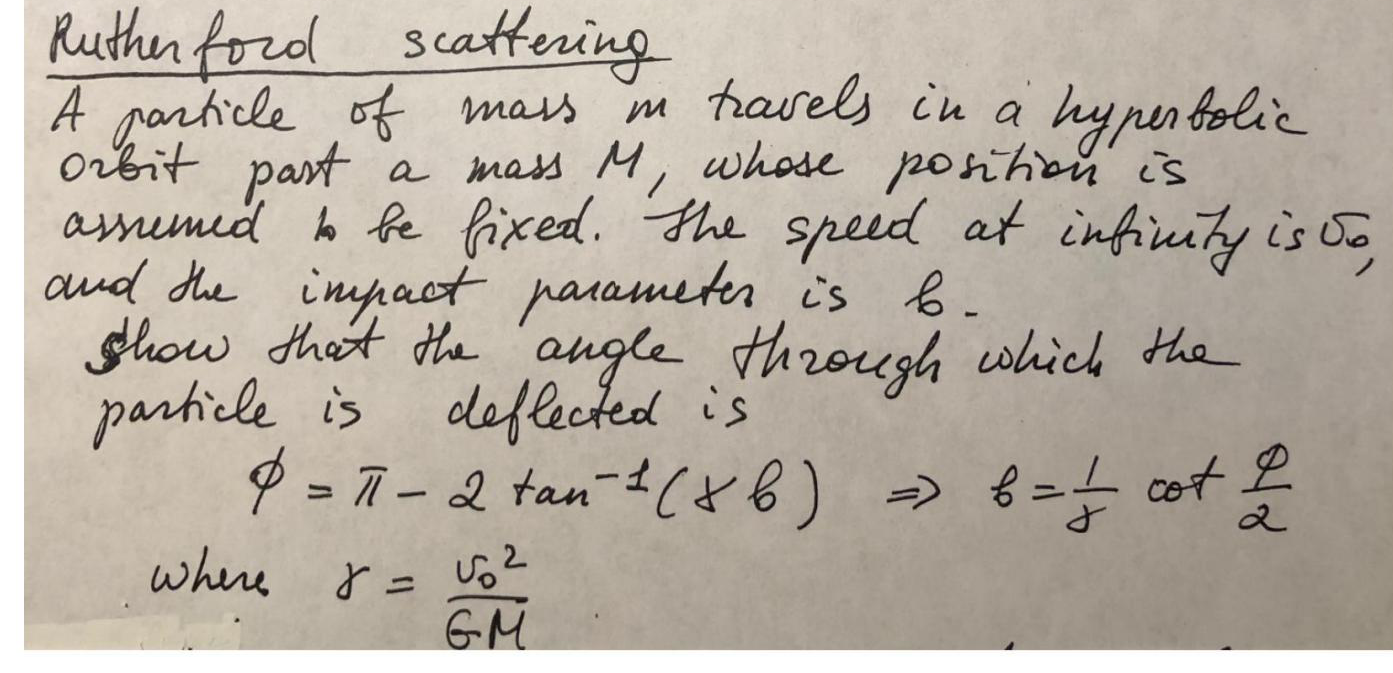 Rutherford scattering
A particle of mass m travels in a hyperbolic
orbit past a mass M, whose position is
assumed to be fixed. The speed at infinity is v₀,
and the impact parameter is b.
Show that the angle through which the
particle is deflected is
ϕ = π - 2 tan⁻¹(γb) ⇒ b = 1/γ cot ϕ/2
where γ = v₀²/GM